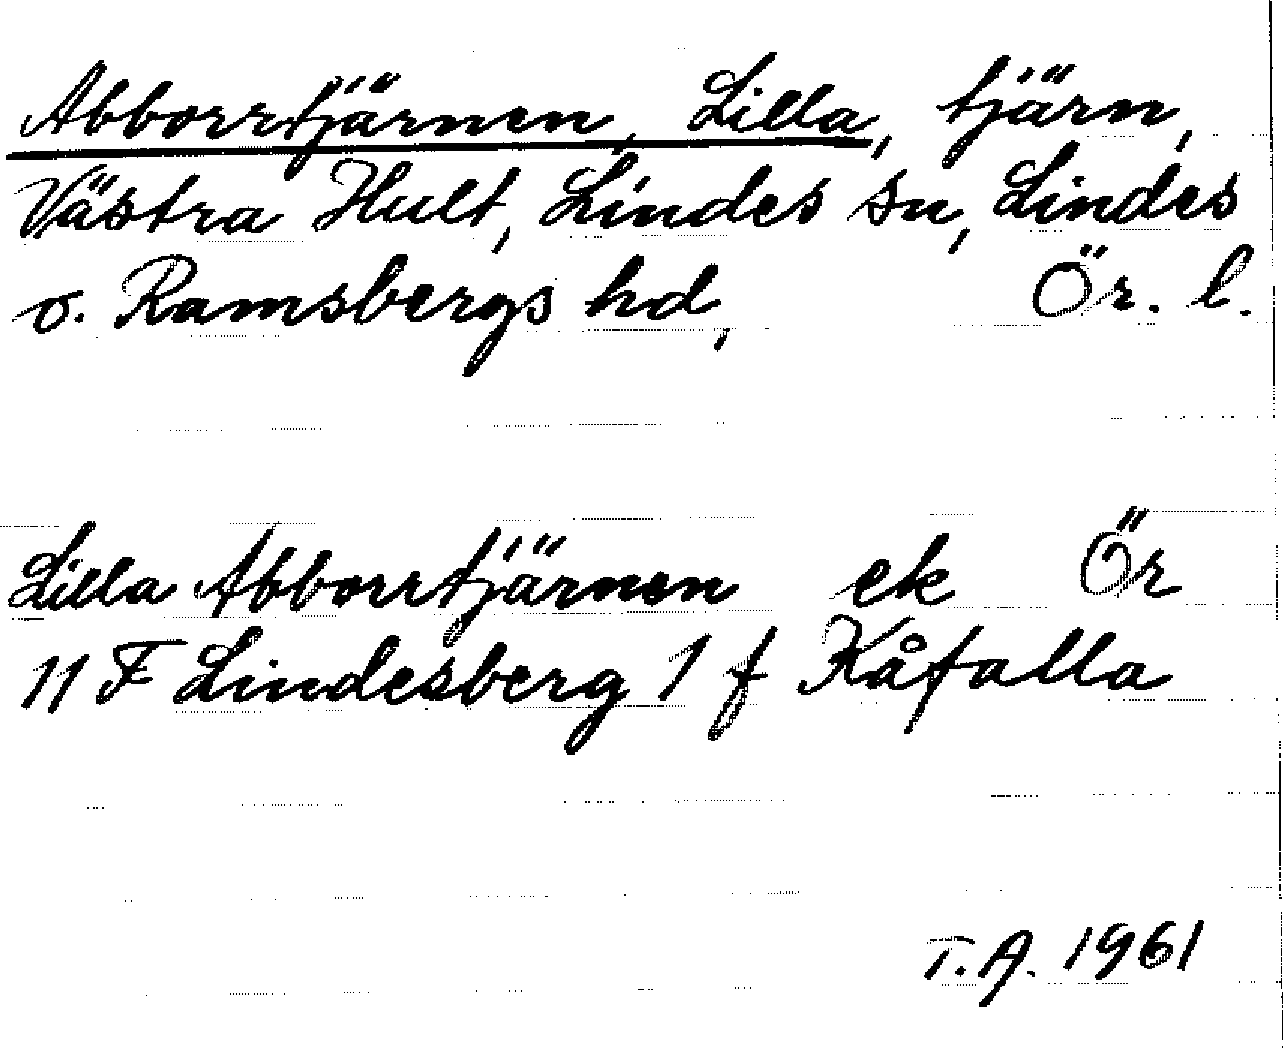 Abborrtjärnen, Lilla, tjärn,
Västra Hult, Lindes sn, Lindes
o. Ramsbergs hd, Ör. l.
Lilla Abborrtjärnen ek Ör
11 F Lindesberg 1 f Kåfalla
T. A. 1961